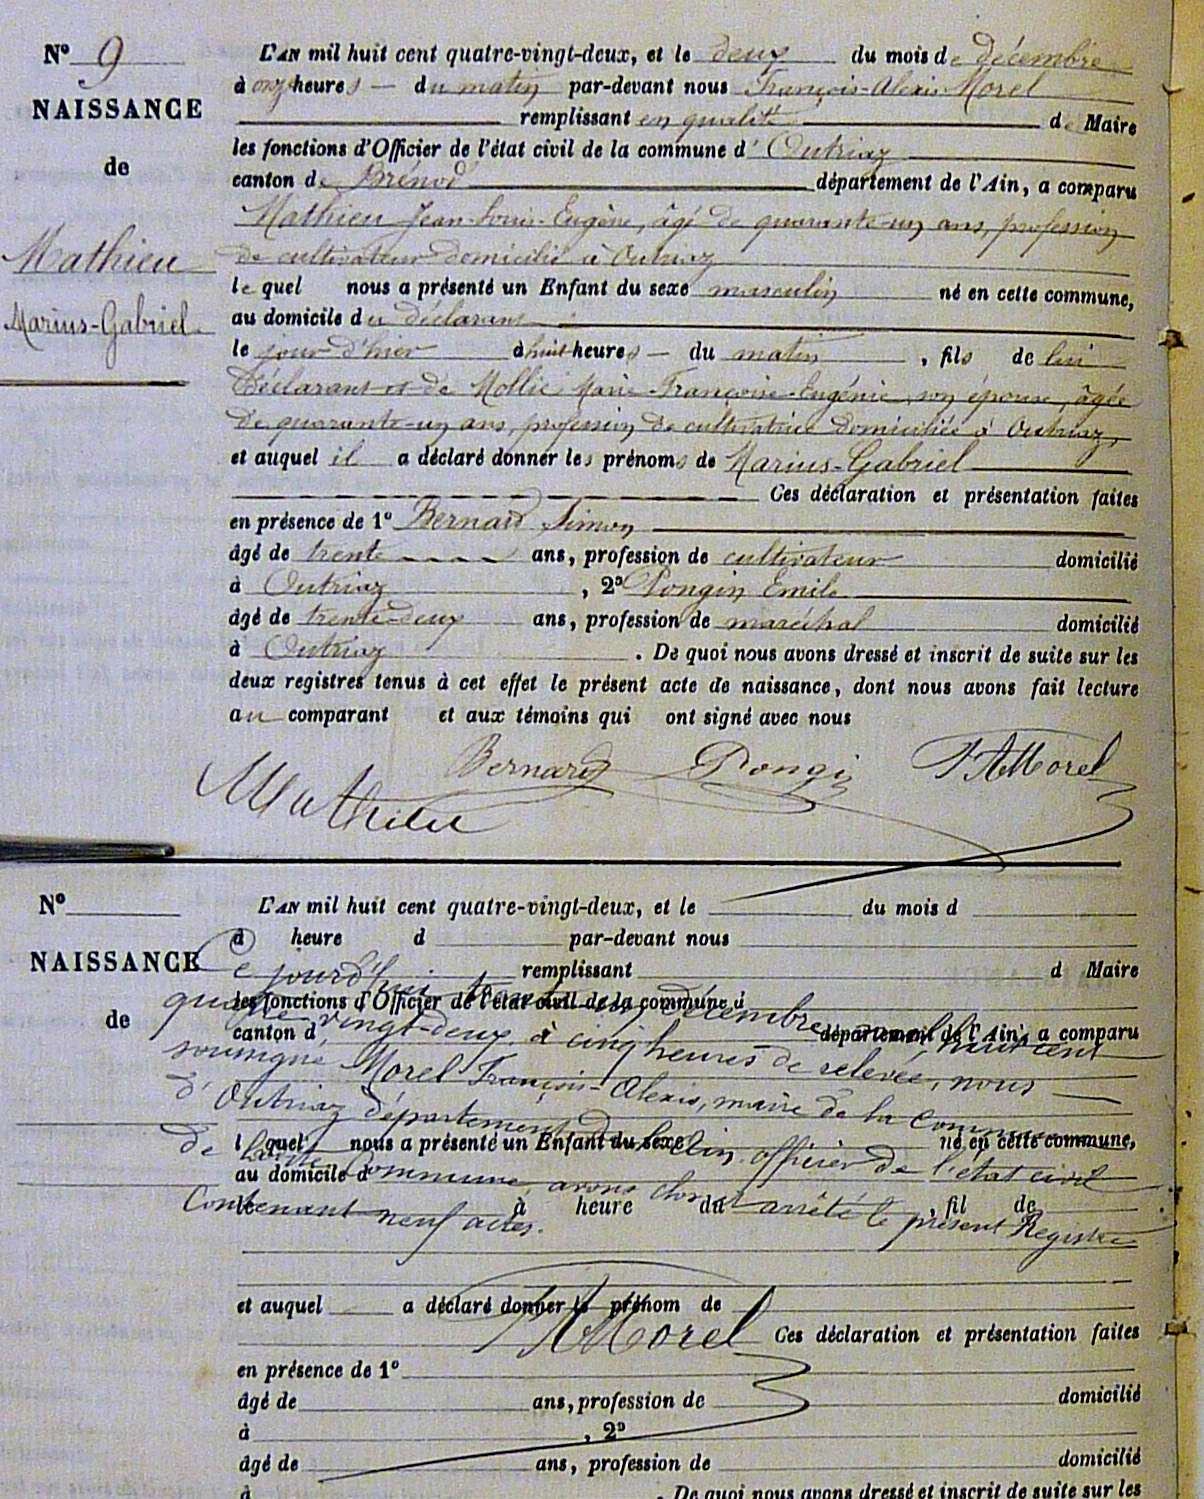 N° 9
NAISSANCE
de
Mathieu
Marius-Gabriel.
L'AN mil huit cent quatre-vingt-deux, et le deux du mois de décembre
à onze heures — du matin par-devant nous François-Alexis Morel
remplissant en qualité de Maire
les fonctions d'Officier de l'état civil de la commune d'Outriaz
canton de Brénod département de l'Ain, a comparu
Mathieu Jean-Louis-Eugène, âgé de quarante-un ans, profession
de cultivateur domicilié à Outriaz
le quel nous a présenté un Enfant du sexe masculin né en cette commune,
au domicile du déclarant
le jour d'hier à huit heures — du matin, fils de lui
Déclarant et de Mollie Marie-Françoise-Eugénie, son épouse, âgée
de quarante-un ans, profession de cultivatrice domiciliée à Outriaz,
et auquel il a déclaré donner les prénoms de Marius-Gabriel
Ces déclaration et présentation faites
en présence de 1° Bernard Simon
âgé de trente ans, profession de cultivateur domicilié
à Outriaz, 2° Pongin Emile
âgé de trente-deux ans, profession de maréchal domicilié
à Outriaz. De quoi nous avons dressé et inscrit de suite sur les
deux registres tenus à cet effet le présent acte de naissance, dont nous avons fait lecture
au comparant et aux témoins qui ont signé avec nous
Bernard Pongin FAMorel
Mathieu
N°
NAISSANCE
de
L'AN mil huit cent quatre-vingt-deux, et le du mois d
à heure d par-devant nous
remplissant d Maire
les fonctions d'Officier de l'état civil de la commune d
canton d département de l'Ain, a comparu
l quel nous a présenté un Enfant du sexe né en cette commune,
au domicile d
le à heure du , fil de
Ce jourd'hui trente-un décembre mil huit cent
quatre-vingt-deux, à cinq heures de relevée, nous
soussigné Morel François-Alexis, maire de la commune
d'Outriaz département de l'Ain, officier de l'état civil
de la dite commune avons clos et arrêté le présent Registre
Contenant neuf actes.
et auquel a déclaré donner le prénom de
FAMorel
Ces déclaration et présentation faites
en présence de 1°
âgé de ans, profession de domicilié
à , 2°
âgé de ans, profession de domicilié
à . De quoi nous avons dressé et inscrit de suite sur les